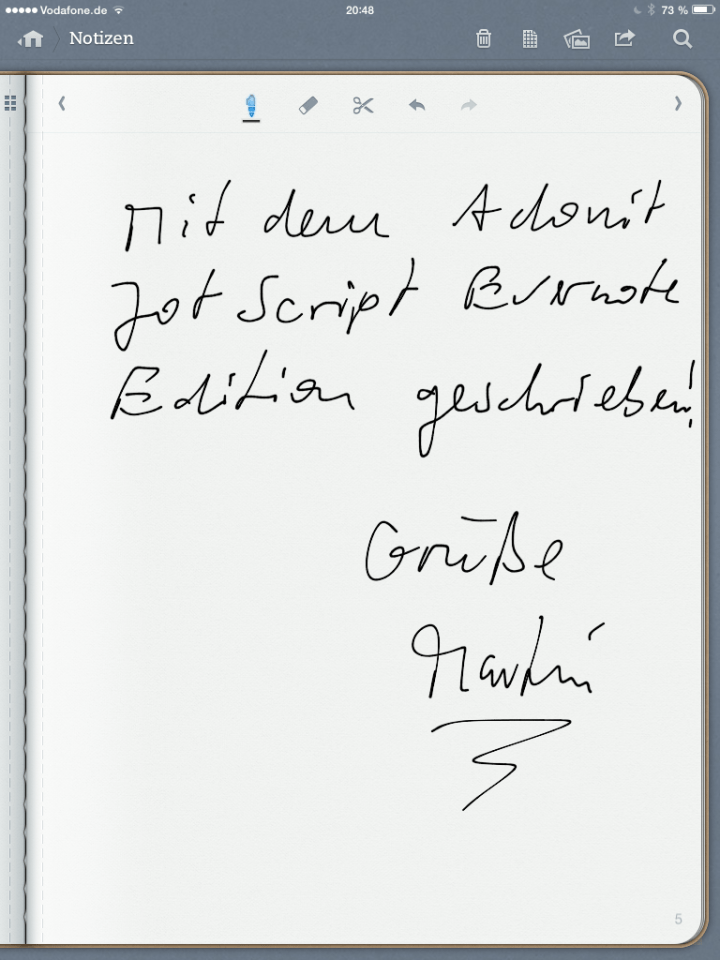 Vodafone.de 20:48 73 %
Notizen
Mit dem Adonit
Jot Script Evernote
Edition geschrieben!
Grüße
Martin
5